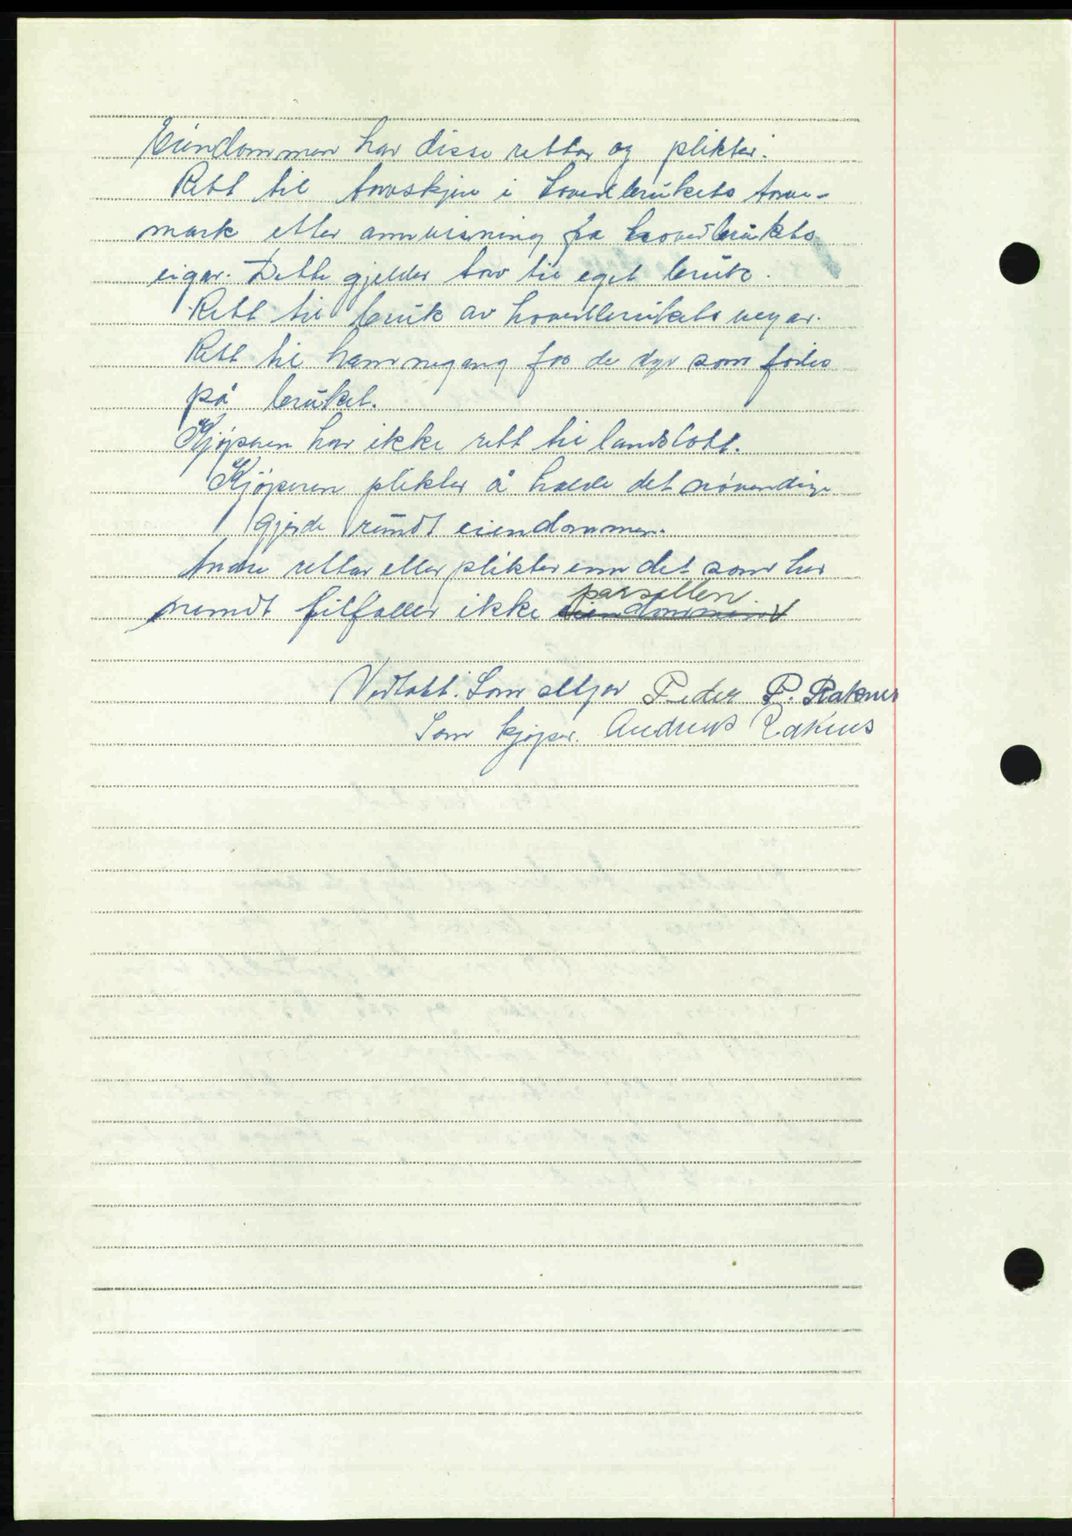 Eiendommen har disse rettar og plikter.
Rett til torvskjær i hovedbrukets torv-
mark etter annvisning fra hovedbrukets
eigar. Dette gjelder torv til eget bruk.
Rett til bruk av hovedbrukets vegar.
Rett til hamnegang for de dyr som fødes
på bruket.
Kjøperen har ikke rett til landslott.
Kjøperen plikter å halde det nøvendige
gjerde rundt eiendommen.
Andre rettar eller plikter enn det som her
nemdt tilfaller ikke parsellen
eiendommen
Vedtatt. Som selljar Peder P. Raknes
Som kjøper. Andreas Raknes